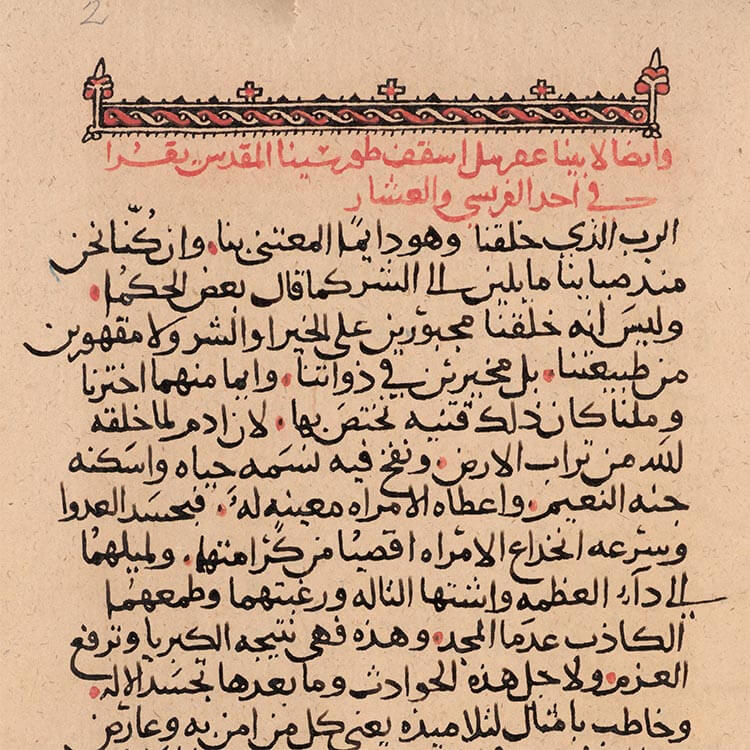 2
وايضا لابينا عفرىىل اسقف طور سينا المقدس يقرا
في احد الفريسي والعشار
الرب الذي خلقنا وهو دايمًا المعتني بنا. وان كُنّا نحن
منذ صبابنا مايلين الى الشر كما قال بعض الحكما.
وليسَ انه خلقنا مجبورين على الخير او الشر ولا مقهورين
من طبيعتنا. بل مخيرين في ذواتنا. وايما منهما اخترنا
وملنا كان ذلك قنيه تختصَ بها. لان ادم لما خلقه
الله من تراب الارض. ونفخ فيه نسمه حياه واسكنه
جنه النعيم. واعطاه الامراه معينه له. فبحسد العدوا
وسرعه انخداع الامراه اقصيا من كرامتها. ولميلهُما
الى دآء العظمه واشتها التاله ورغبتهما وطمعهما
الكاذب عدما المجد. وهذه فهي نتيجه الكبريا وترفع
العزم. ولاجل هذه الحوادث وما بعدها تجسد الاله.
وخاطب بامثال لتلاميذه يعني كل من امن به وعارض